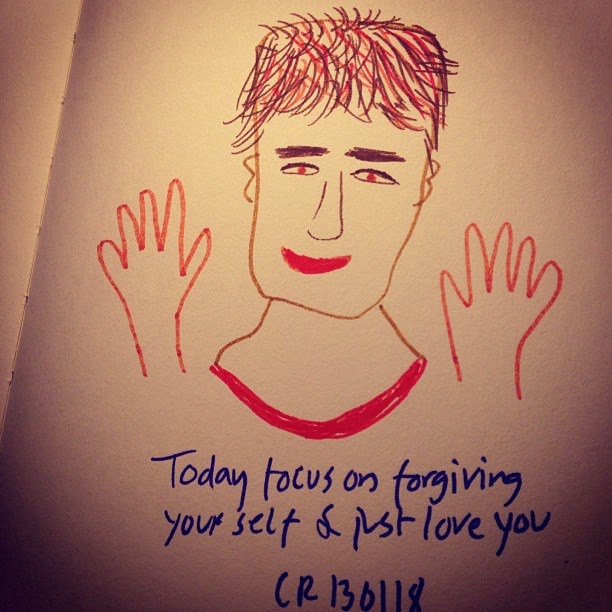 Today focus on forgiving
your self & just love you
CR 130118